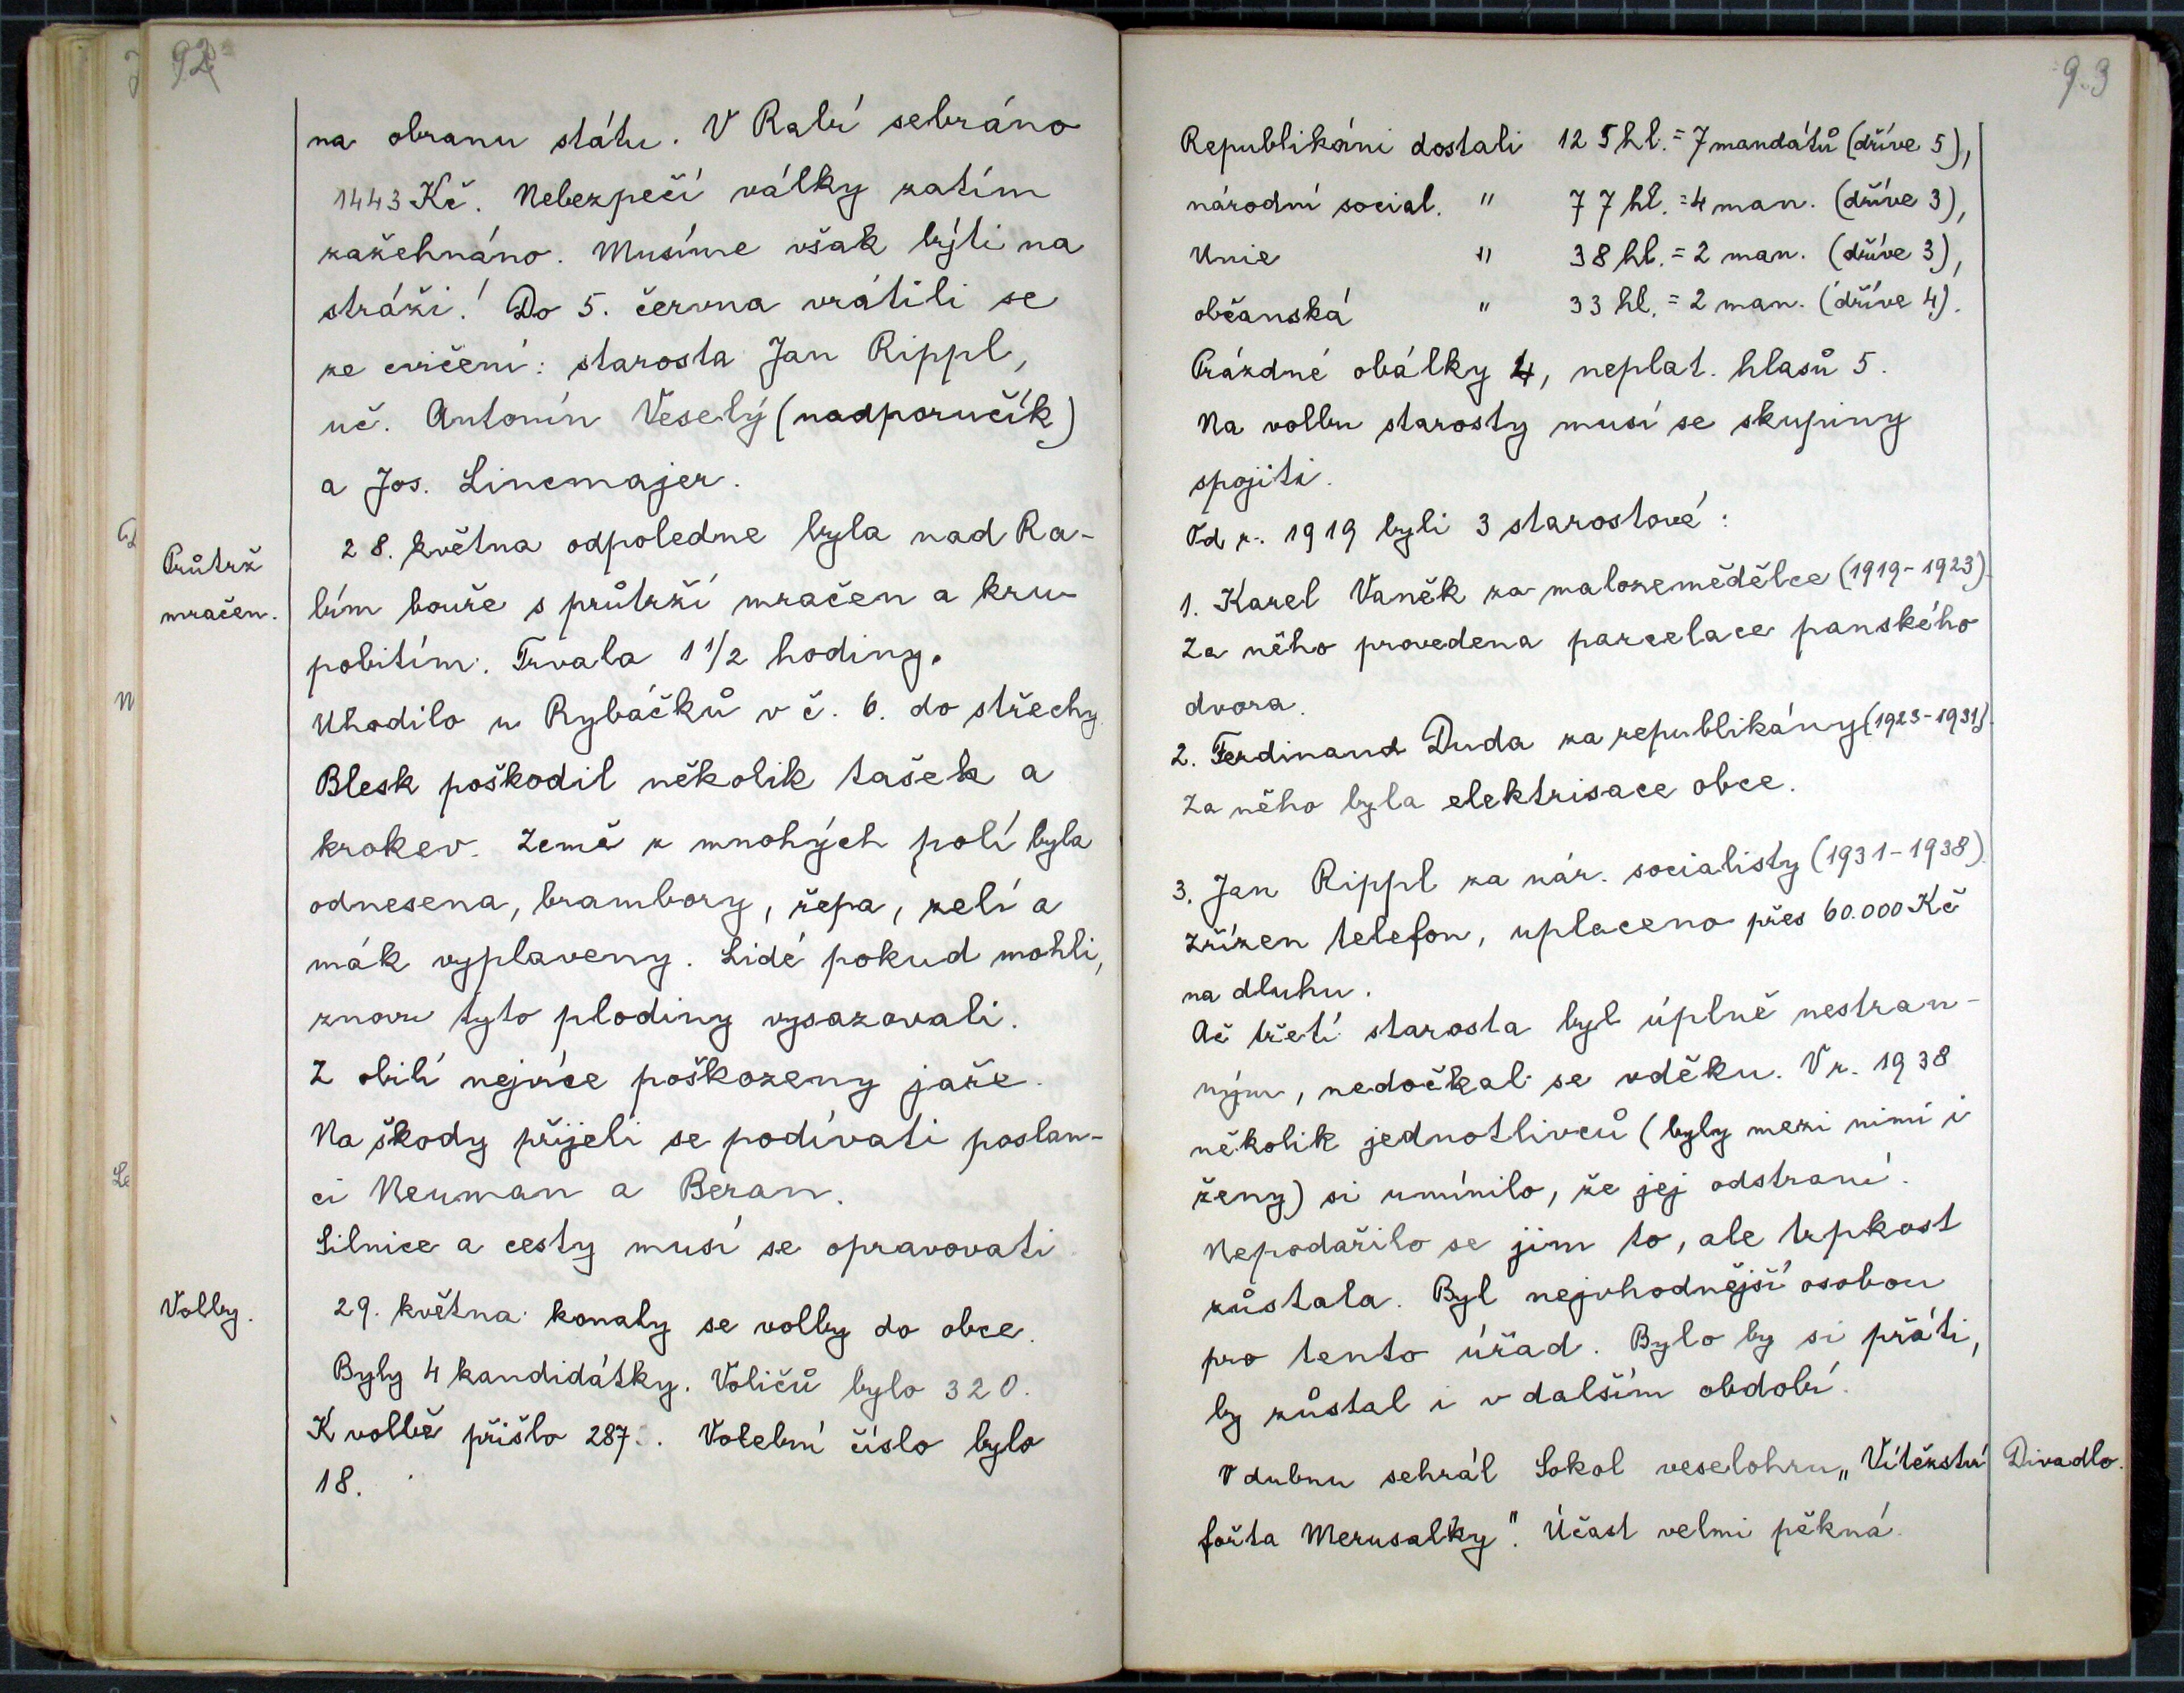 92
na obranu státu. V Rabí sebráno
1443 Kč. Nebezpečí války zatím
zažehnáno. Musíme však býti na
stráži! Do 5. června vrátili se
ze cvičení: starosta Jan Rippl,
uč. Antonín Veselý (nadporučík)
a Jos. Lincmajer.
28. května odpoledne byla nad Ra-
Průtrž
mračen.
bím bouře s průtrží mračen a kru-
pobitím. Trvala 1 1/2 hodiny.
Uhodilo u Rybáčků v č. 6. do střechy.
Blesk poškodil několik tašek a
krokev. Země z mnohých polí byla
odnesena, brambory, řepa, zelí a
mák vyplaveny. Lidé pokud mohli,
znovu tyto plodiny vysazovali.
Z obilí nejvíce poškozeny jaře.
Na škody přijeli se podívati poslan-
ci Neuman a Beran.
Silnice a cesty musí se opravovati.
Volby.
29. května konaly se volby do obce.
Byly 4 kandidátky. Voličů bylo 320.
K volbě přišlo 287. Volební číslo bylo
18.
93
Republikáni dostali 125 hl. = 7 mandátů (dříve 5),
národní social. " 77 hl. = 4 man. (dříve 3),
Unie " 38 hl. = 2 man. (dříve 3),
občanská " 33 hl. = 2 man. (dříve 4).
Prázdné obálky 4, neplat. hlasů 5.
Na volbu starosty musí se skupiny
spojiti.
Od r. 1919 byli 3 starostové:
1. Karel Vaněk za malozemědělce (1919-1923).
Za něho provedena parcelace panského
dvora.
2. Ferdinand Duda za republikány (1923-1931).
Za něho byla elektrisace obce.
3. Jan Rippl za nár. socialisty (1931-1938).
Zřízen telefon, uplaceno přes 60.000 Kč
na dluhu.
Ač třetí starosta byl úplně nestran-
ným, nedočkal se vděku. V r. 1938
několik jednotlivců (byly mezi nimi i
ženy) si umínilo, že jej odstraní.
Nepodařilo se jim to, ale trpkost
zůstala. Byl nejvhodnější osobou
pro tento úřad. Bylo by si přáti,
by zůstal i v dalším období.
V dubnu sehrál Sokol veselohru „Vítězství
Divadlo.
fořta Merusalky". Účast velmi pěkná.